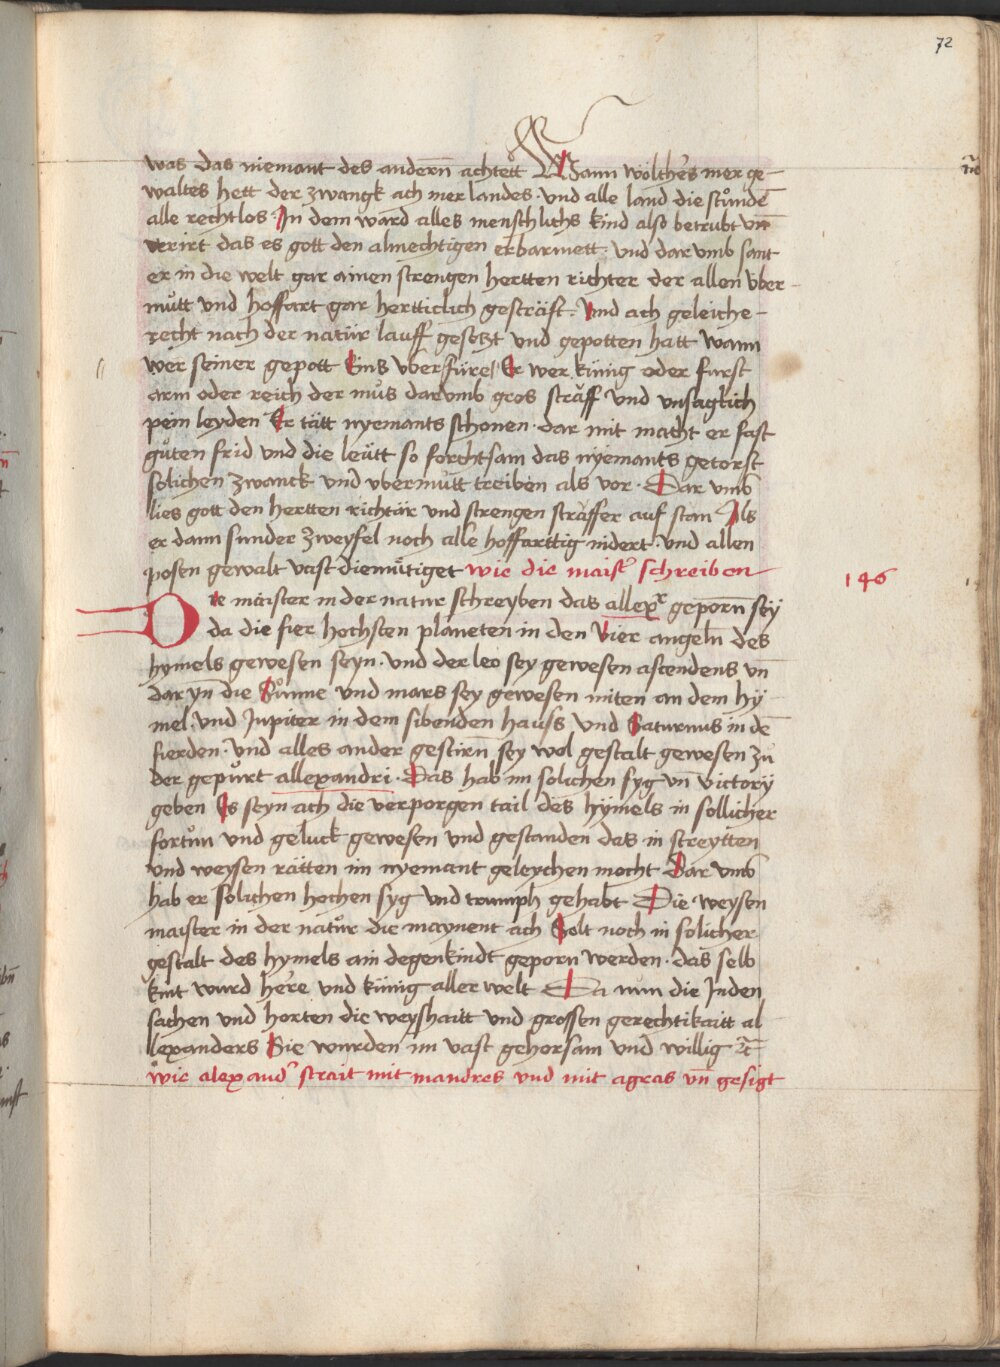 72
was das niemant des andern̄ achtett Wann wölches mer ge-
waltes hett der zwangk ach mer landes · und alle land die stůndē
alle rechtlos · In dem ward alles menschlichs kind also betrubt vn̄
verirt das es gott den almechtigen erbarmett · und dar vmb sant
er in die welt gar ainen strengen hertten richter der allen über-
můtt und hoffart gar hertticlich gesträft · Und ach geleiche-
recht nach der natür lauff gesetzt und gepotten hatt wann
wer seiner gepott Eins vberfüre / Er wer künig oder furst
arm oder reich der můs darvmb gros sträff und unsaglich
pein leyden Er tätt nyemants schonen · dar mit macht er fast
gůten frid und die leütt so forchtsam das nyemants getorst
solichen zwanck und vbermutt treiben als vor · Dar vmb
lies gott den hertten richtär und strengen sträffer auf stan Als
er dann sunder zweyfel noch alle hoffarttig nidert · und allen
posen gewalt vast diemůtiget wie die maist͛ schreiben
146
Die maister in der natur schreyben das allexr geporn̄ sey
da die fier hochsten planeten in den Vier angeln̄ des
hymels gewesen seyn · und der leo sey gewesen ascendens vn̄
dar yn̄ die Sůnne und mars sey gewesen miten an dem hy-
mel · und Jupiter in dem sibenden hauss und Saturnus in dē
fierden · und alles ander gestirn̄ sey wol gestalt gewesen zů
der gepůrt allexandri · Das hab im solichen syg vn̄ victory
geben Es seyn ach die verporgen tail des hymels in sollicher
fortůn und geluck gewesen und gestanden das in streytten
und weysen rätten im nyemant geleychen mocht Dar vmb
hab er solichen hochen syg und triumph gehabt Die weysen
maister in der natůr die maynent ach Solt noch in solicher
gestalt des hymels ain degenkindt geporn werden · das selb
kint wurd here und künig aller welt Da nun die Juden
sachen und horten die weyshaitt und grossen gerechtikaitt al
lexanders Sie wurden im vast gehorsam und willig ꝛc̄
wie alexand͛ strait mit mandres und mit agras vn̄ gesigt